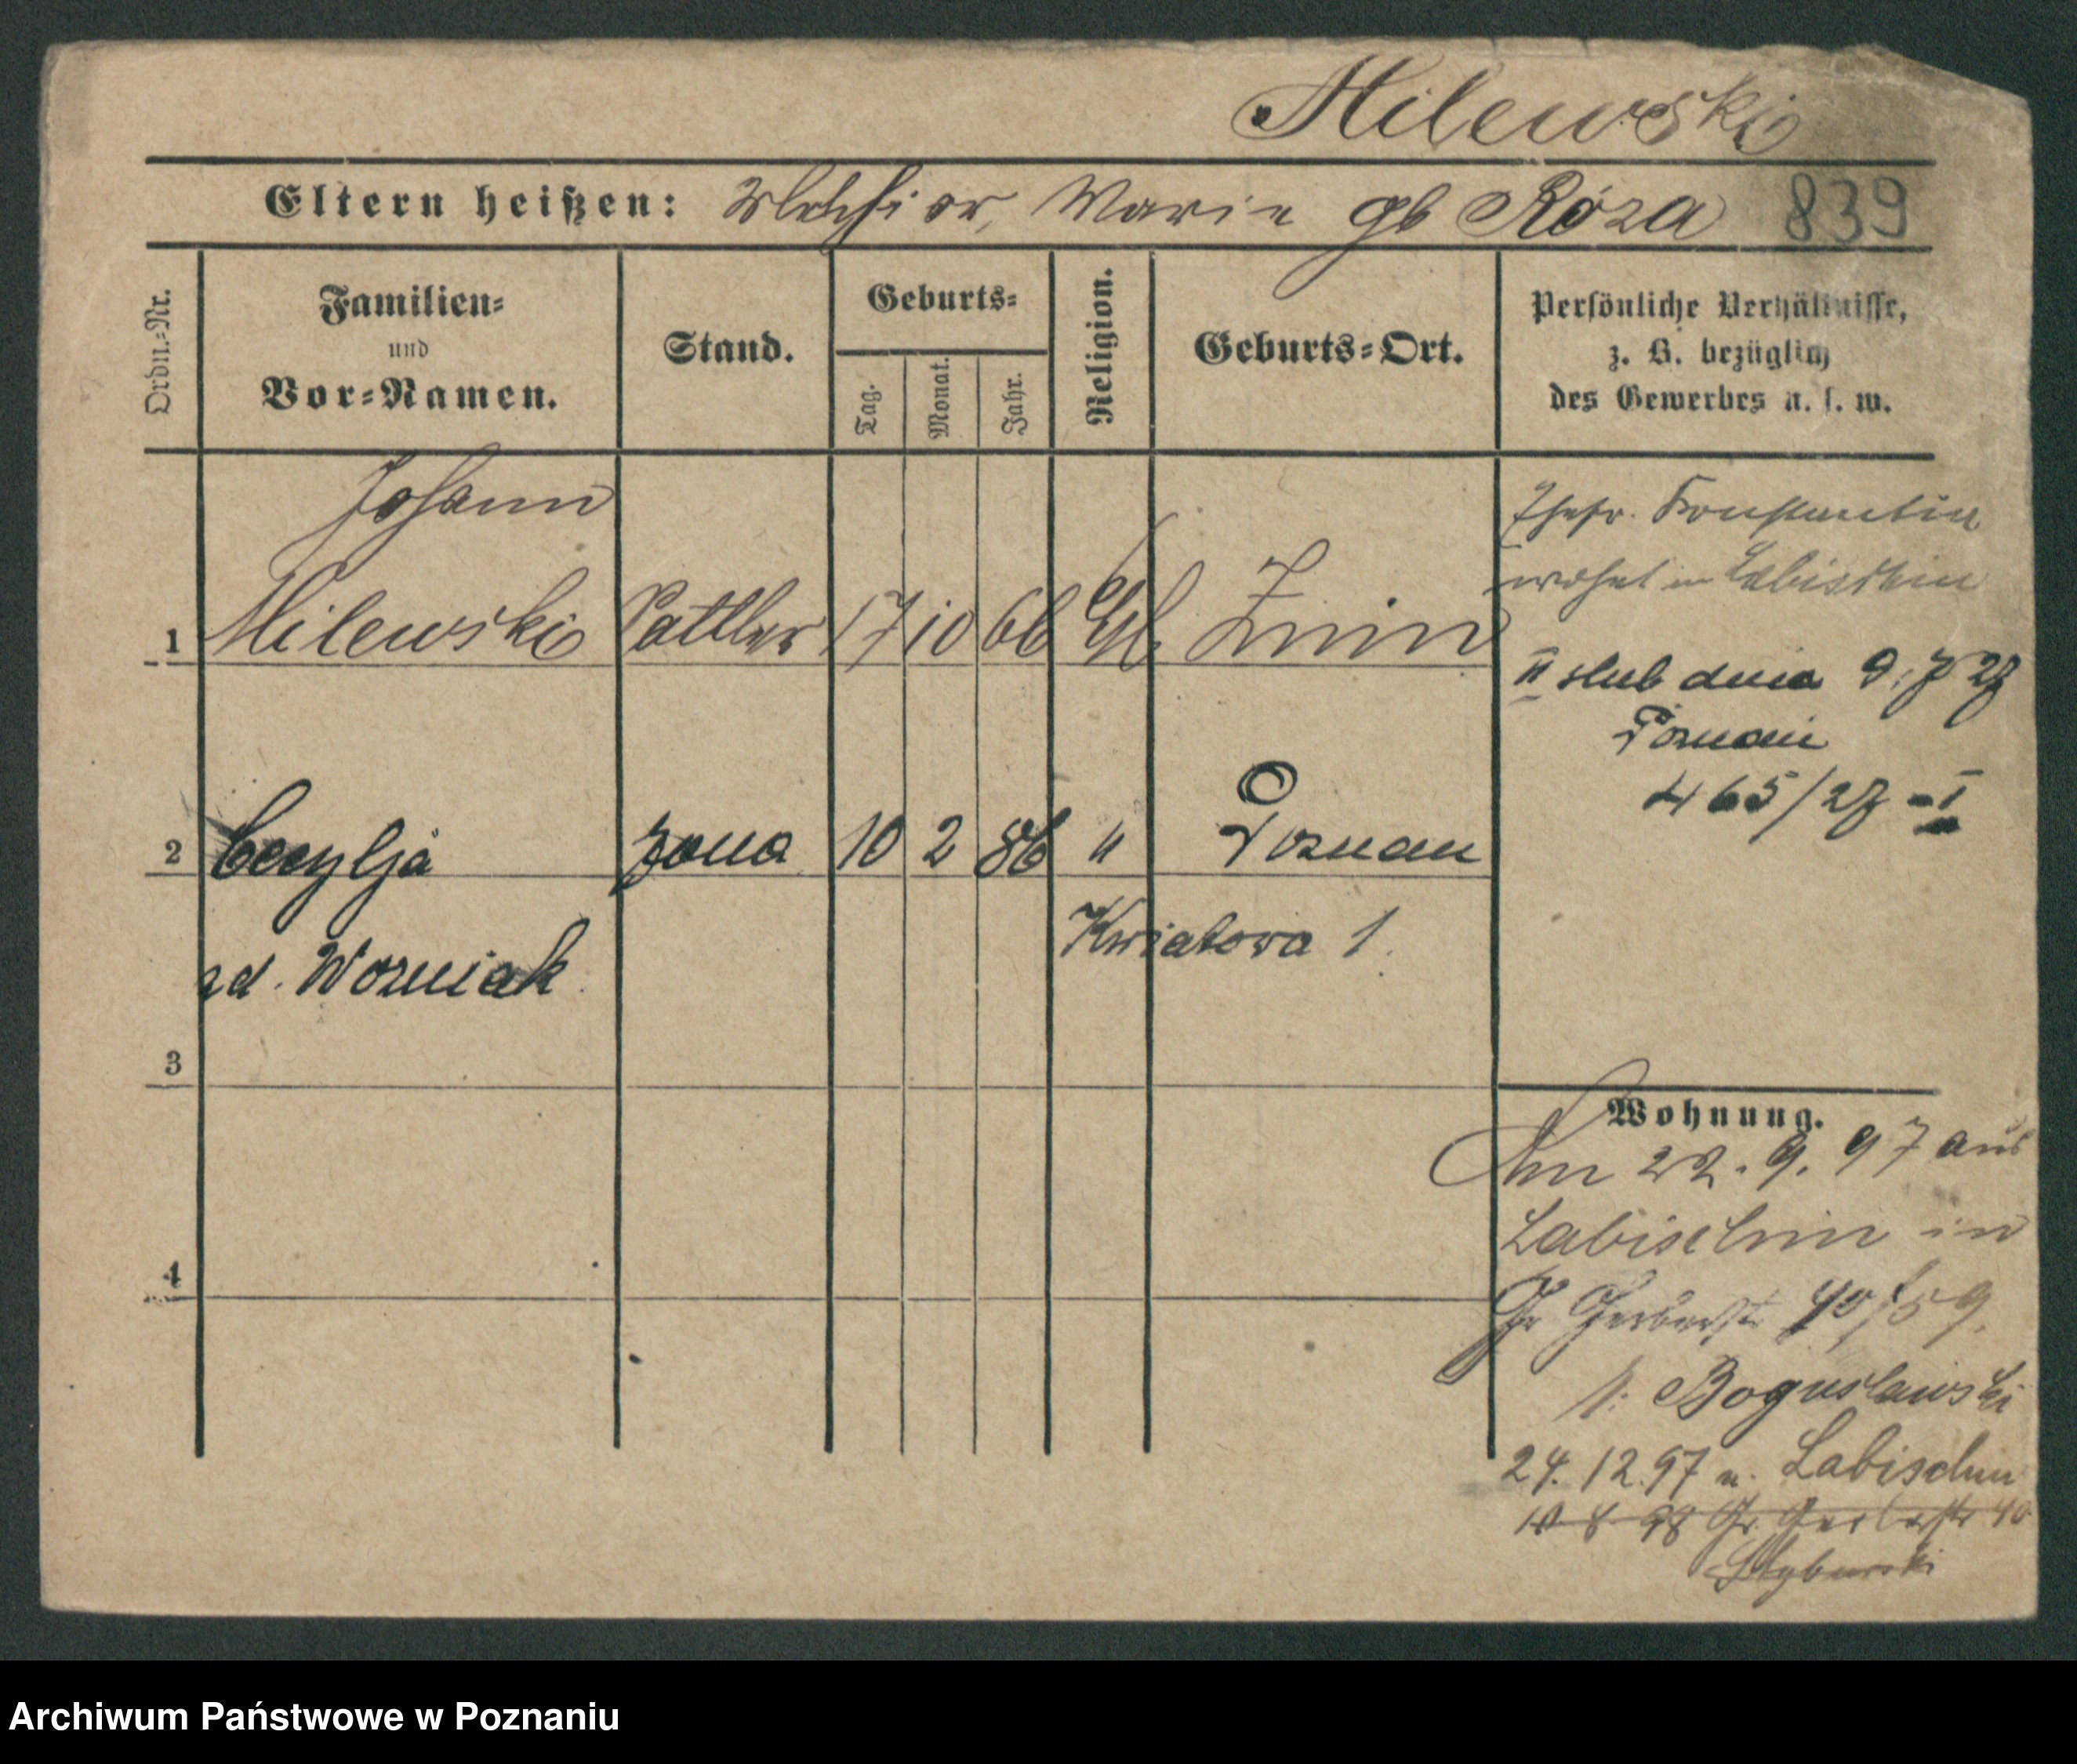 Milewski
Eltern heißen: Melchior, Marie gb Róza 839
Ordn.-Nr.
Familien-
und
Vor-Namen.
Stand.
Geburts-
Tag.
Monat.
Jahr.
Religion.
Geburts-Ort.
Persönliche Verhältnisse,
z. B. bezüglich
des Gewerbes u. s. w.
Johann
1 Milewski Sattler 17 10 66 Znin
Ehefr. Konstantia
wohnt in Labischin
II slub dnia 9.7 27
Poznań
465/27 - I
2 Cecylja żona 10 2 86 " Poznan
zd. Wozniak
Kwiatowa 1.
3
4
Wohnung.
Am 22. 9. 97 aus
Labischin in
Gr Gerberstr 40/59.
b. Boguslawski
24. 12. 97 n. Labischin
10 8 98 Gr. Gerberstr 40
Archiwum Państwowe w Poznaniu